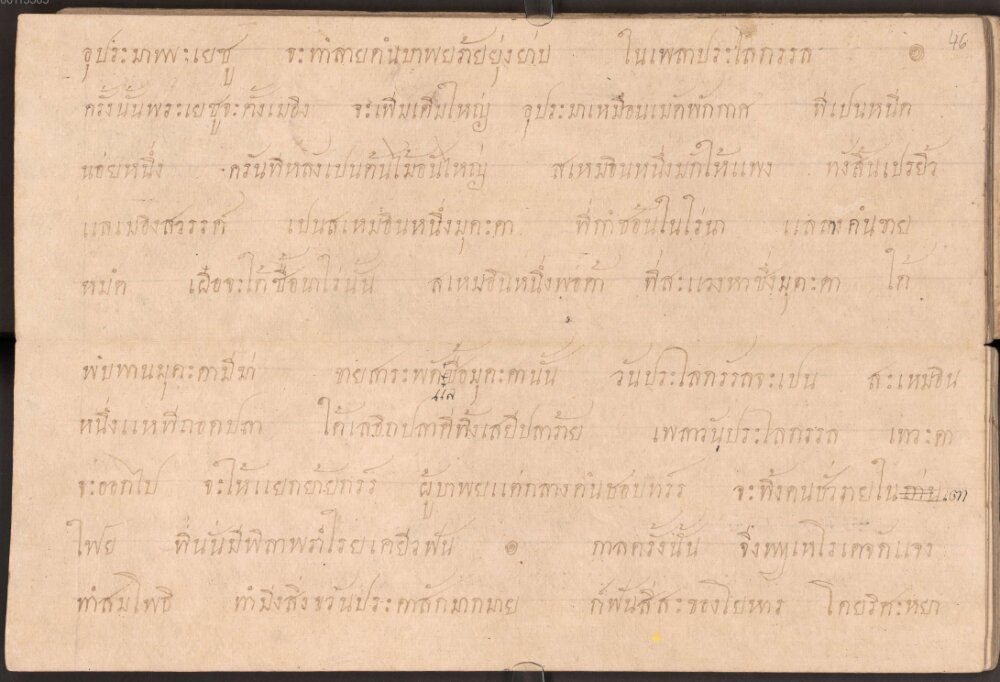 46
อุประมาพระเยซู จะทำลายคนบาพยภ้ยยุ่งยาบ ในเพลาประไลกรรล ๏
ครั้งนั้นพระเยซูจะตั้งเมอิง จะเพิ่มเติมใหญ่ อุประมาเหมือนเมดพักกาศ ที่เปนหนีด
นอ่ยหนึ่ง ครันทีหลังเปนต้นไม้อนใหญ่ สเหมอินหนึ่งมักให้แพง ทงสิ้นเปรยิ้ว
แลเมอิงสวรรค์ เปนสเหมอินหนึ่งมุคะดา ที่ทำซอ้นในไร่นา แลลางคนขาย
หมด เผื่อจะได้ซื้อนาไร่นั้น สเหมอินหนึ่งพอ่ค้า ที่สะแวงหาซึ่งมุคะดา ได้
พบพานมุคะดามีม่า ขายสาระพัดแล้ซื้อมุคะดานั้น วันประไลกรรลจะเปน สะเหมอิน
หนึ่งแหทีถอดปลา ได้เลอิกปลาดีทิ้งเสยีปลาร้าย เพลาวันประไลกรรล เทวะดา
จะออกไป จะให้แยกย้ายกรร ผู้บาพยแต่กลางคนชอบทรร จะทิ้งคนชั่วภายในเตา
ไฟย พื้นนั่นมีพิลาพรำไรยเคยีวฟัน ๏ กาลครั้งนั้น จึ่งพญาเหโรเดจัดแจง
ทำสมโพธิ ทำมิ่งสิ่งขวันประดาสักมากมาย ก็ฟันสีสะของโยหาร โดยริศะหยา